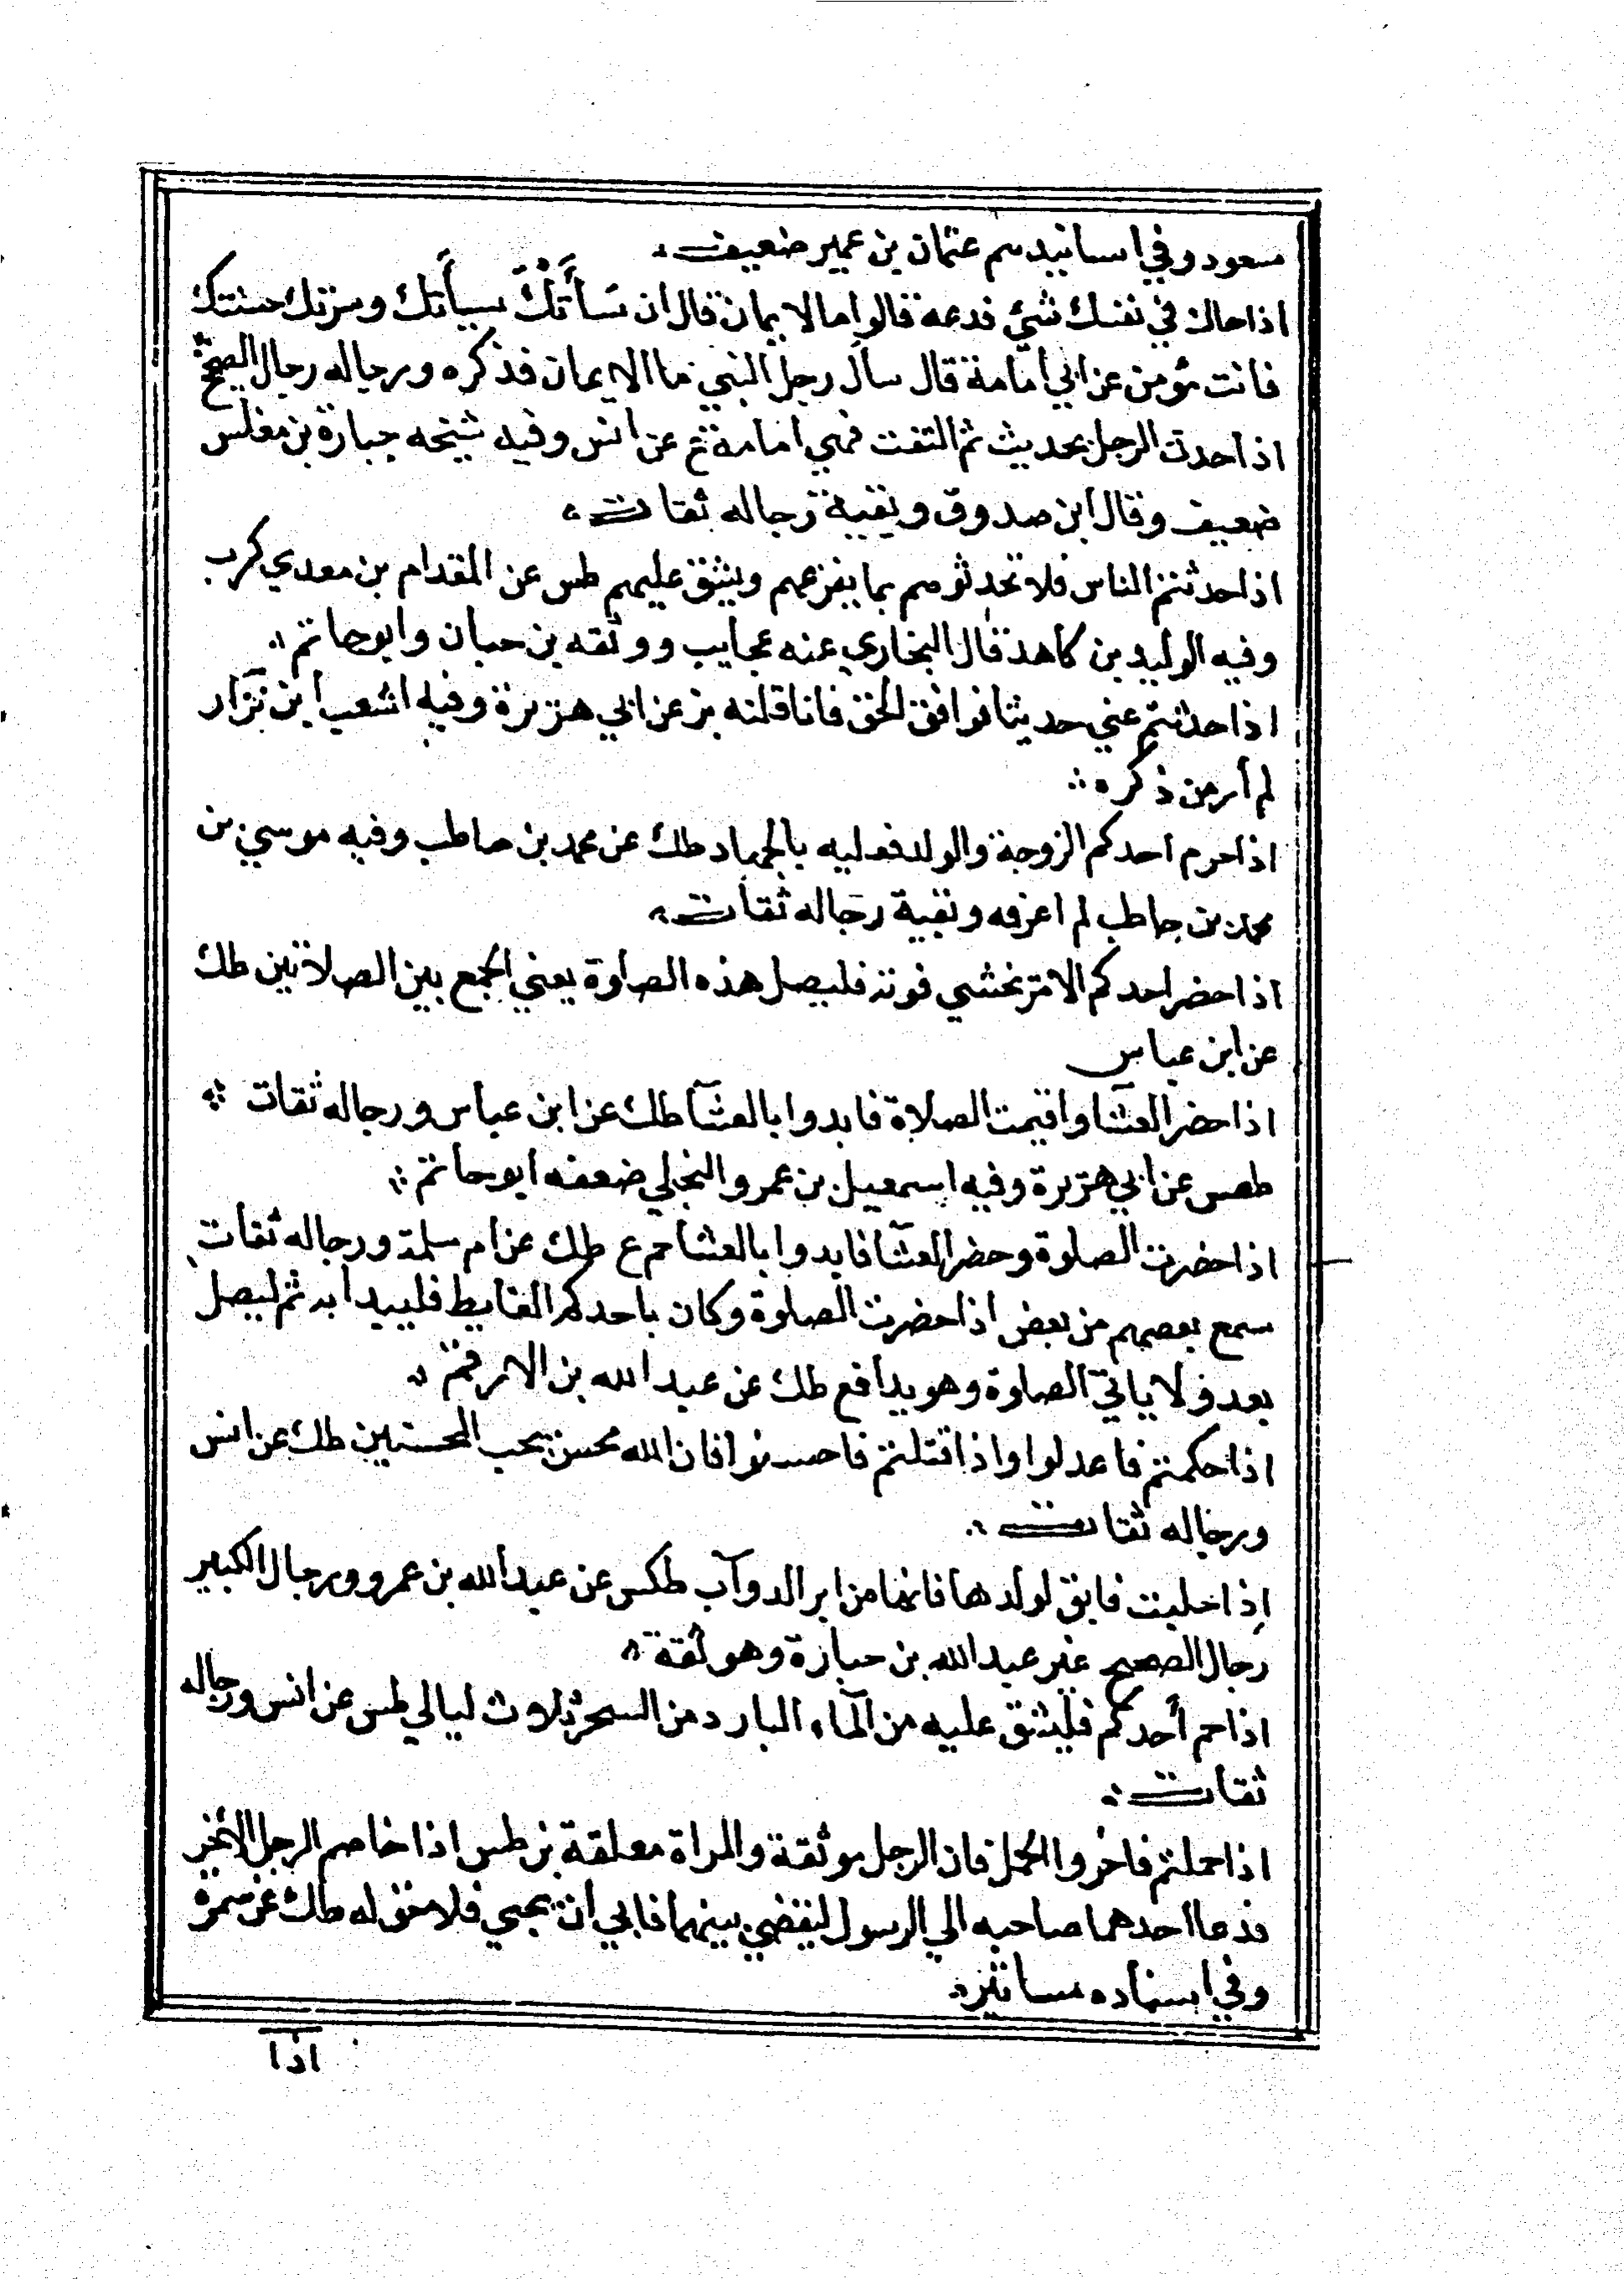 مسعود وفي اسانيدهم عثمان بن عمير ضعيف
اذا حاك في نفسك شئ فدعه قالوا ما الايمان قال ان سَأَتْكَ سيأتك وسرتك حسنتك
فانت مؤمن عن ابي أمامة قال سأل رجل النبي ما الايمان فذكره ورجاله رجال الصحيح
اذا حدث الرجل بحديث ثم التفت فهي امامة ع عن انس وفيه شيخه جبارة بن مغلس
ضعيف وقال ابن صدوق وبقية رجاله ثقات
اذا حدثتم الناس فلا تحدثوهم بما يفزعهم ويشق عليهم طس عن المقدام بن معدي كرب
وفيه الوليد بن كاهد قال البخاري عنه عجايب ووثقه بن حبان وابو حاتم
اذا حدثتم عني حديثا فوافق الحق فانا قلته بز عن ابي هريرة وفيه اشعب ابن نزار
لم أر من ذكره
اذا حرم احدكم الزوجة والولد فعليه بالجهاد طك عن محمد بن حاطب وفيه موسي بن
محمد بن حاطب لم اعرفه وبقية رجاله ثقات
اذا حضر احدكم الامر نخشي فوته فليصل هذه الصلوة يعني الجمع بين الصلاتين طك
عن ابن عباس
اذا حضر العشا واقيمت الصلاة فابدوا بالعشآ طك عن ابن عباس ورجاله ثقات
طس عن ابي هريرة وفيه اسمعيل بن عمرو البجلي ضعفه ابو حاتم
اذا حضرت الصلوة وحضر العشا فابدوا بالعشا حم ع طك عن ام سلمة ورجاله ثقات
سمع بعضهم من بعض اذا حضرت الصلوة وكان باحدكم الغايط فليبدا به ثم ليصل
بعد ولا ياتي الصلوة وهو يدافع طك عن عبد الله بن الارقم
اذا حكمتم فاعدلوا واذا قتلتم فاحسنوا فان الله محسن يحب المحسنين طك عن انس
ورجاله ثقات
اذا حلبت فابق لولدها فانها من ابر الدوآب طكس عن عبد الله بن عمرو ورجال الكبير
رجال الصحيح غير عبد الله بن حبارة وهو ثقة
اذا حم أحدكم فليشق عليه من المآء البارد من السحر ثلاث ليالي طس عن انس ورجاله
ثقات
اذا حملتم فاخروا الحمل فان الرجل موثقة والمراة معلقة بز طس اذا خاصم الرجل الاخر
فدعا احدهما صاحبه الي الرسول ليقضي بينهما فابي ان يجي فلا حق له طك عن سمرة
وفي اسناده مساتير
اذا